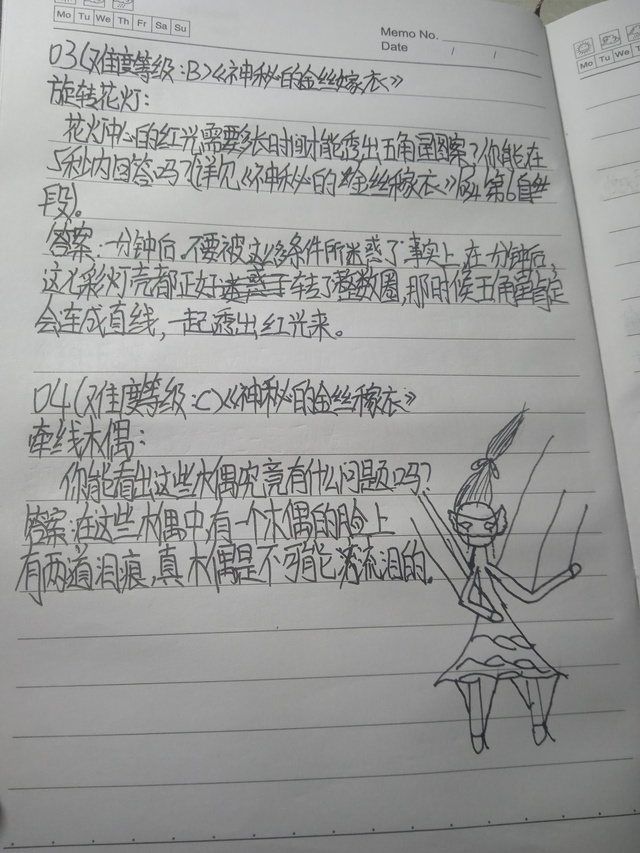 Mo Tu We Th Fr Sa Su
Memo No.
Date / /
Mo Tu We
03(难度等级:B)《神秘的金丝嫁衣》
旋转花灯:
花灯中心的红光需要多长时间才能透出五角星图案?你能在
5秒内回答吗?(详见《神秘的金丝嫁衣》 第6自然
段)。
答案:一分钟后。不要被这么多条件所迷惑了事实上,在一分钟后,
这个彩灯壳都正好转了整数圈,那时候五角星肯定
会连成直线,一起透出红光来。
04(难度等级:C)《神秘的金丝嫁衣》
牵线木偶:
你能看出这些木偶究竟有什么问题吗?
答案:在这些木偶中,有一个木偶的脸上
有两道泪痕,真木偶是不可能流泪的。